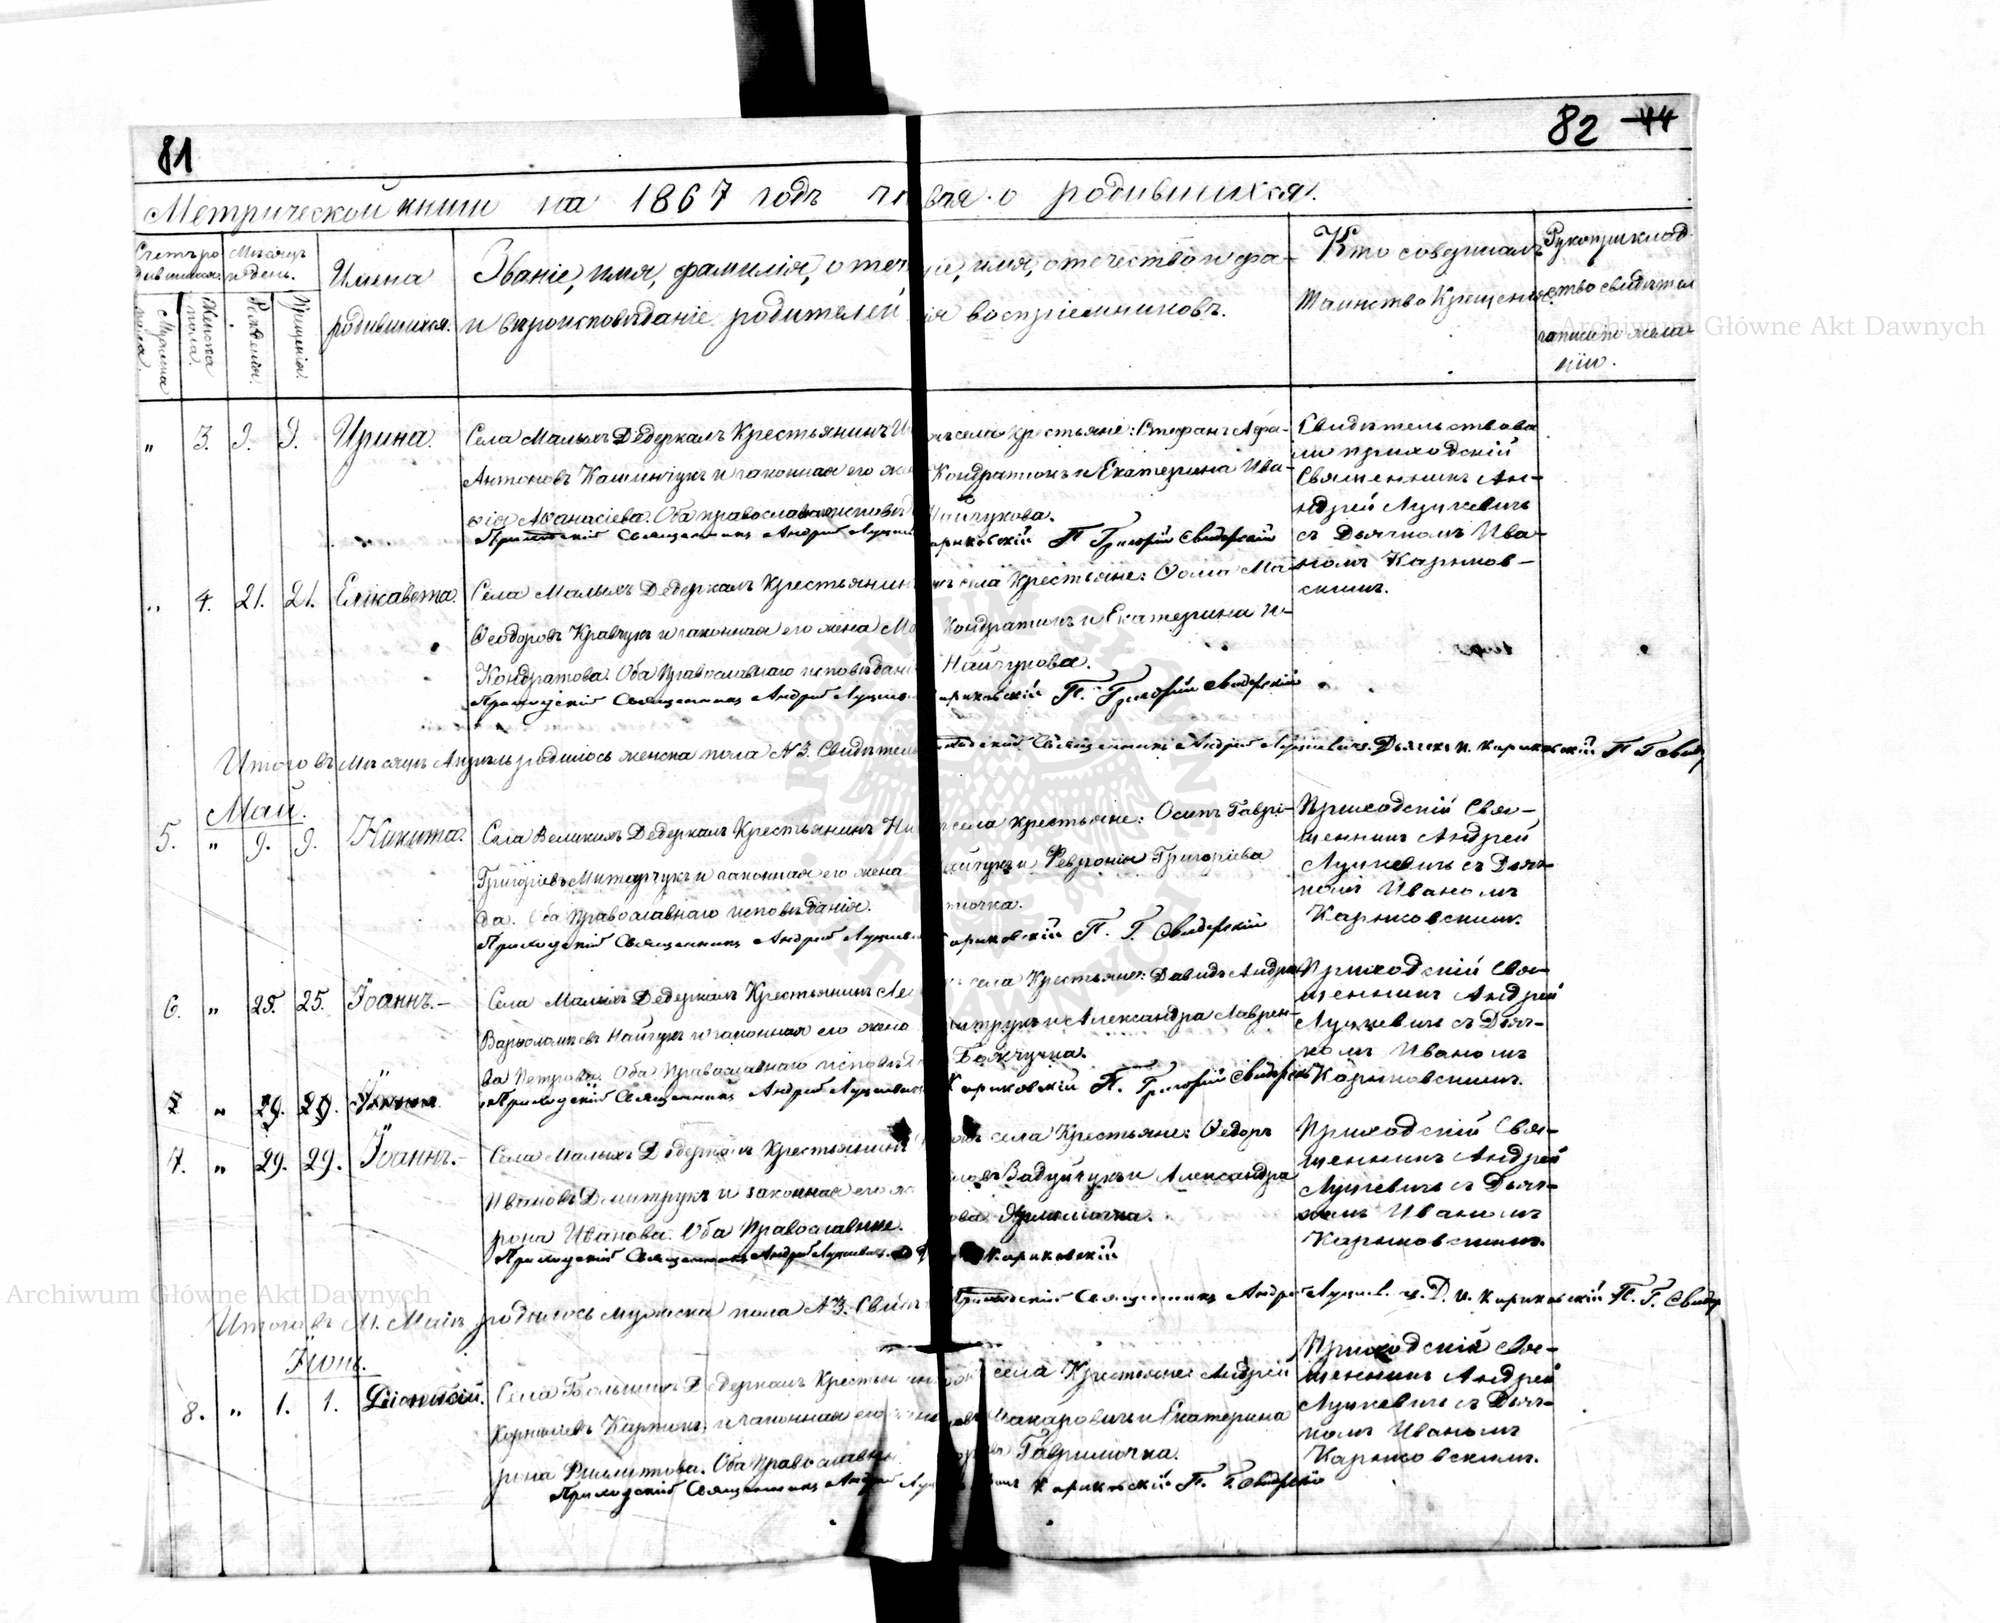 81
82 44
Метрической книги на 1867 годъ ч о родившихся.
Счетъ ро
дившихся.
Мѣсяцъ
и день.
Имена
родившихся.
Званіе, имя, фамилія, отеч
и вѣроисповѣданіе родителей
імя, отечество и фа-
воспріемниковъ.
Кто совершалъ
таинство Крещенія.
Рукоприклад
ство свидѣтел
записи по жела
нію.
Мужеска
пола.
Женска
пола.
Рожденія.
Крещенія.
„ 3. 9. 9. Ирина.
Села Малыхъ Дедеркалъ Крестьянинъ
Антоновъ и законная его же
Аѳанасіева. Оба православнаго исповѣд
Приходскій Священникъ Андрей Луцкев
села Крестьяне: Стефанъ Аѳа-
Кондратюкъ и Екатерина Ива-
Найчукова.
ариковскій П Григорій Свидерскій
Свидѣтельствова
ли приходскій
Священникъ Ан-
дрей Луцкевичъ
съ Дьячкомъ Ива-
номъ Карыков-
скимъ.
„ 4. 21. 21. Елисавета.
Села Малыхъ Дедеркалъ Крестьянин
Ѳеодоровъ Кравчукъ и законная его жена Ма
Кондратова. Оба Православнаго исповѣдані
Приходскій Священникъ Андрей Луцкев
села Крестьяне: Ѳома Ма-
Кондратюкъ и Екатерина И-
Найчукова.
ариковскій П. Григорій Свидерскій
Итого въ Мѣсяцѣ Апрѣлѣ родилось женска пола №3. Свидѣтель
Священникъ Андрей Луцкевичъ. Дьячекъ И. Кариковскій П Г Свид
Май.
5. „ 9. 9. Никита.
Села Великихъ Дедеркалъ Крестьянинъ Ни
Григоріевъ и законная его жена
да. Оба Православнаго исповѣданія.
Приходскій Священникъ Андрей Луцкев
села Крестьяне: Осипъ Гаврі-
и Февронія Григоріева
ариковскій П. Г. Свидерскій
Приходскій Свя-
щенникъ Андрей
Луцкевичъ съ Дьяч-
комъ Иваномъ
Карыковскимъ.
6. „ 25. 25. Іоаннъ.
Села Малыхъ Дедеркалъ Крестьянинъ Ле
Варѳоломѣевъ Найчукъ и законная его жена
ва Петрова. Оба Православнаго исповѣд
Приходскій Священникъ Андрей Луцкевичъ
села Крестьяне: Давидъ Андре
и Александра Лаврен-
Кариковскій П. Григорій Свидерскъ
Приходскій Свя-
щенникъ Андрей
Луцкевичъ съ Дьяч-
комъ Иваномъ
Карыковскимъ.
„ 29. 29.
7. „ 29. 29. Іоаннъ.
Села Малыхъ Дедеркалъ Крестьянинъ
Ивановъ Дмитрукъ и законная его ж
рона Иванова. Оба Православные.
Приходскій Священникъ Андрей Луцкевичъ
села Крестьяне: Ѳедоръ
и Александра
Кариковскій
Приходскій Свя-
щенникъ Андрей
Луцкевичъ съ Дьяч-
комъ Иваномъ
Карыковскимъ.
Итого въ М. Маѣ родилось мужеска пола №3. Свидѣт
Приходскій Священникъ Андрей Луцкев. ч. Д. И. Кариковскій П. Г. Свидер
Іюнь.
8. „ 1. 1. Діонисій.
Села Большихъ Дедеркалъ Крестьянин
и законная его
рона Филиппова. Оба Православны
Приходскій Священникъ Андрей
села Крестьяне Андрей
Макаровичъ и Екатерина
Гаврилючка.
Кариковскій П. Г. Свидерскій
Приходскій Свя-
щенникъ Андрей
Луцкевичъ съ Дьяч-
комъ Иваномъ
Карыковскимъ.
Archiwum Główne Akt Dawnych
Archiwum Główne Akt Dawnych